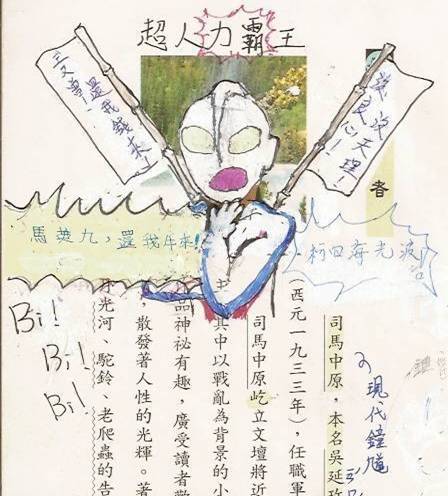 超人力霸王
還我錢來!
天理!
良心!!
者
馬英九,還我牛來!
光波!!
Bi!
Bi!
Bi!
現代鐘馗
司馬中原,本名吳延玫
(西元一九三三年),任職軍
司馬中原屹立文壇將近
其中以戰亂為背景的小
品神祕有趣,廣受讀者
散發著人性的光輝。著
光河、駝鈴、老爬蟲的告